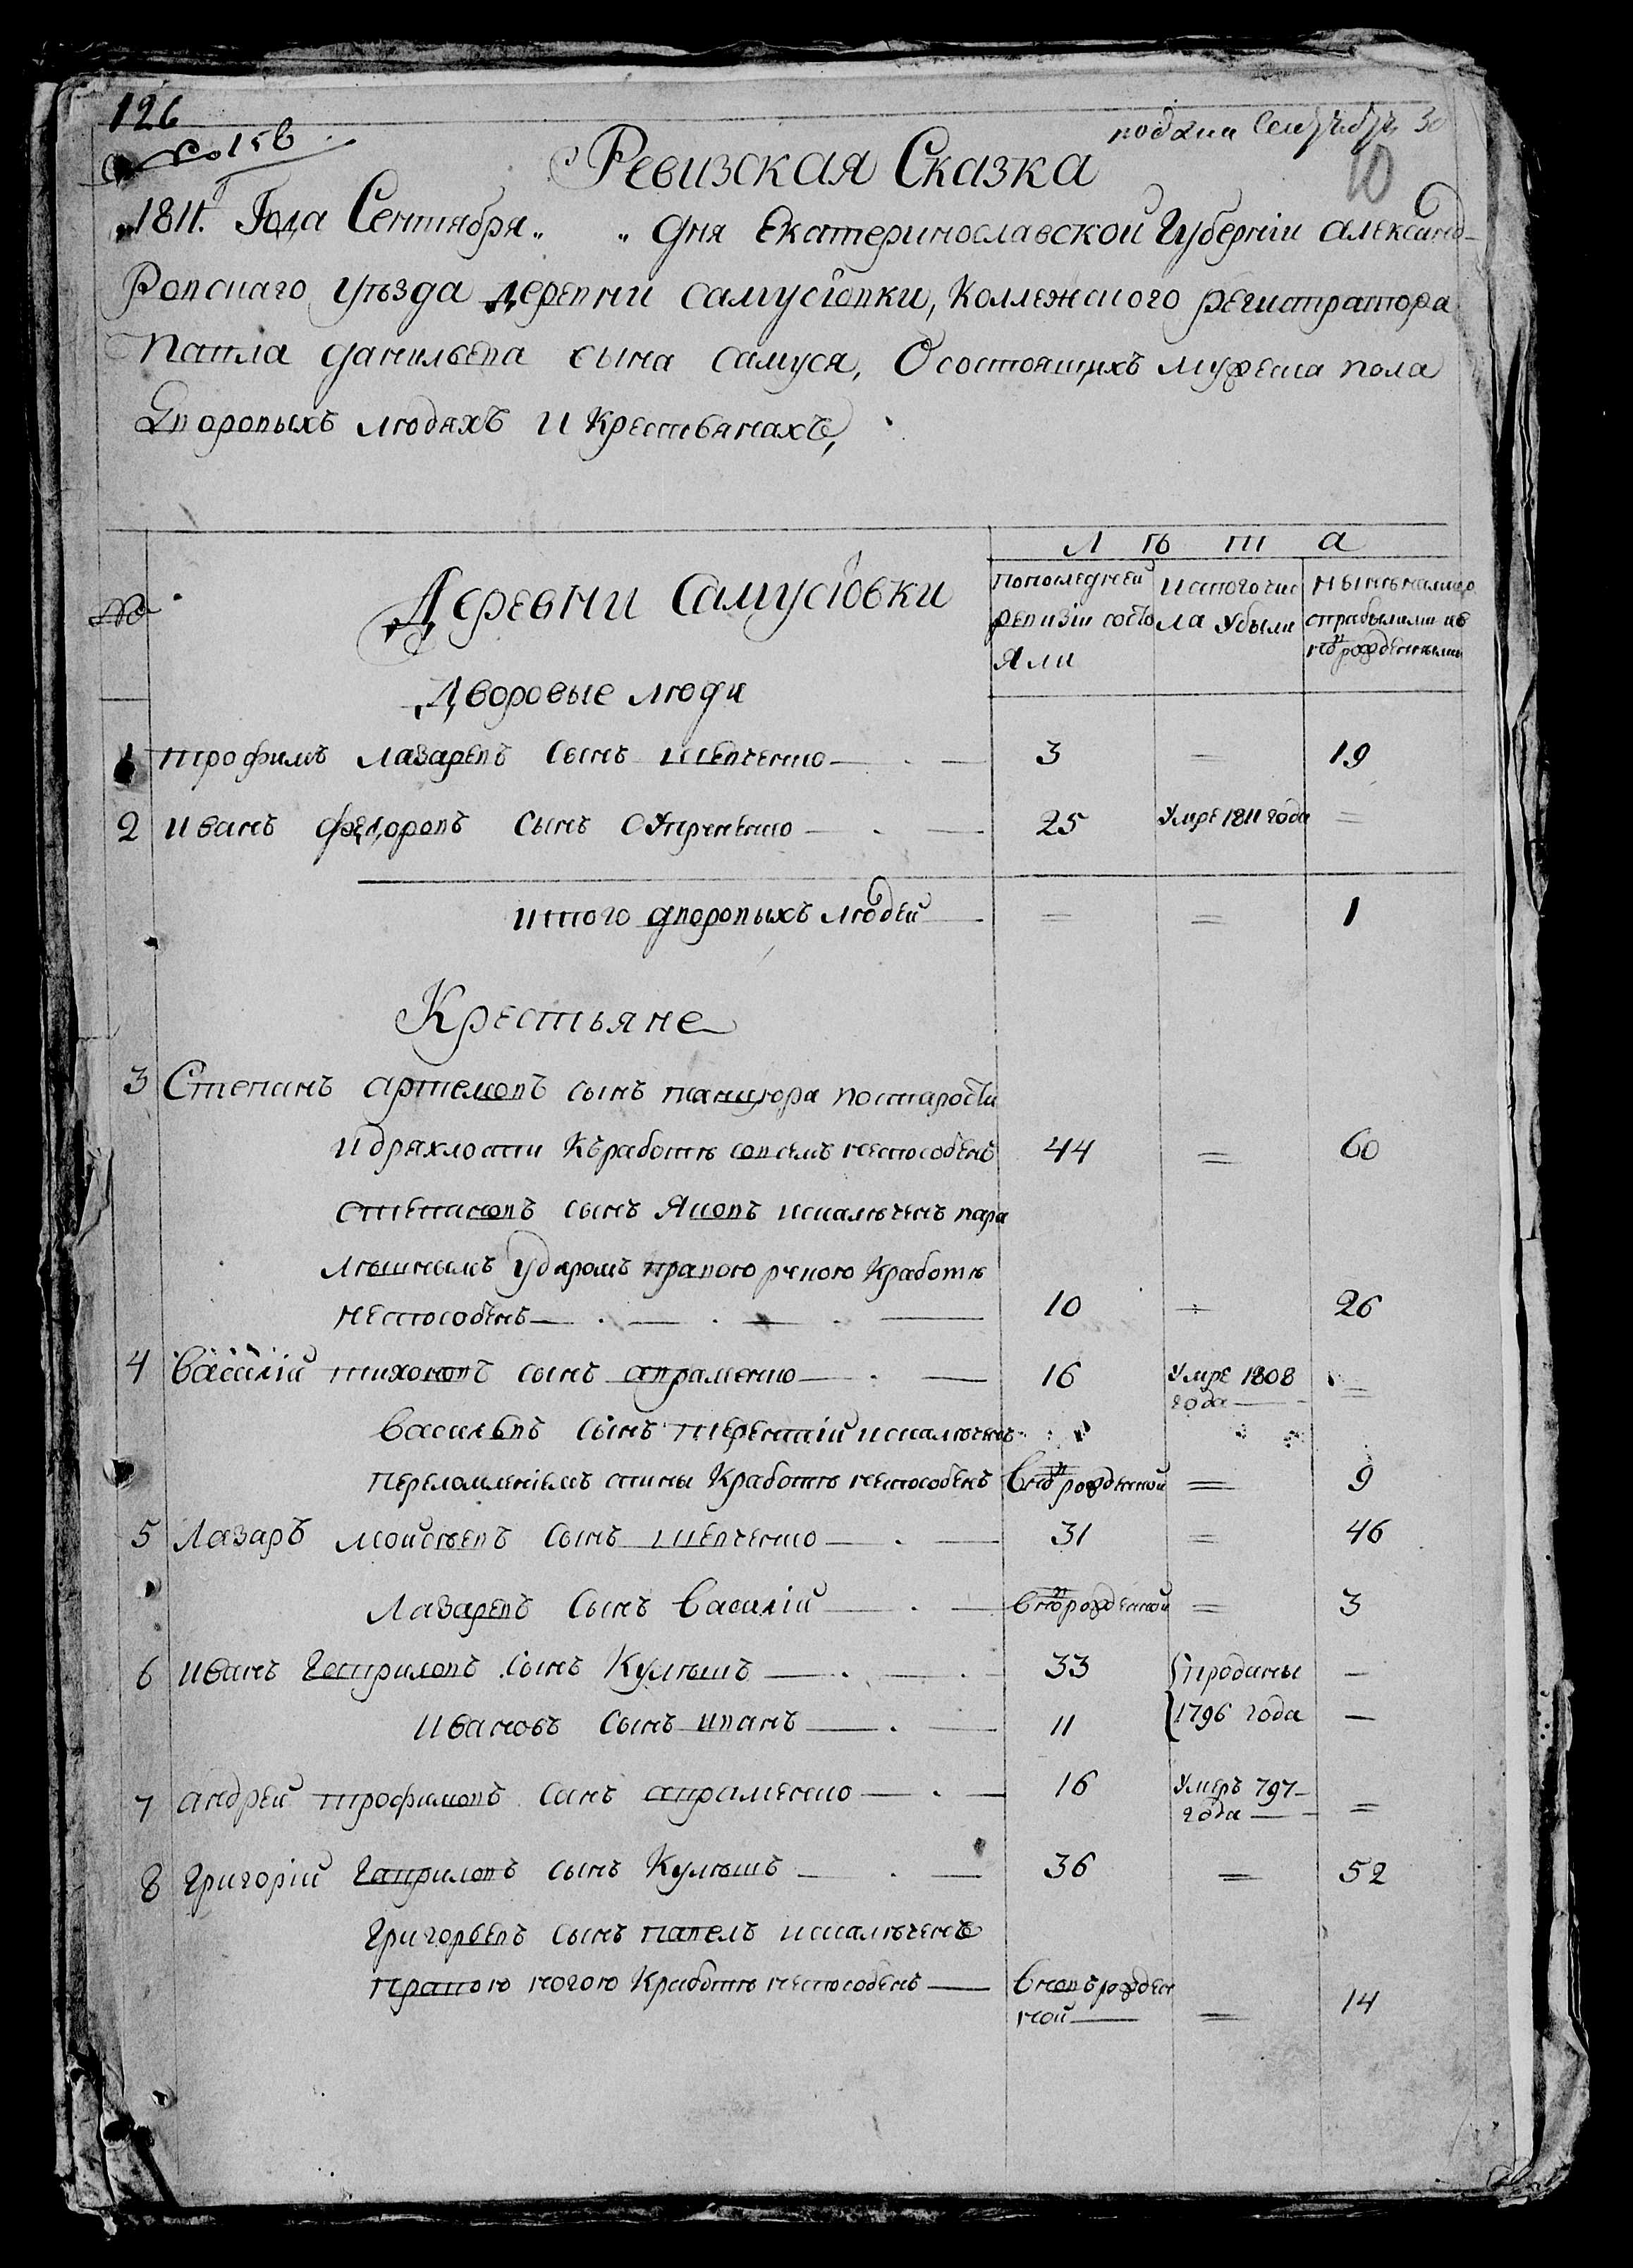 126
подана Сентября 30
10
Ревизская Сказка
1811. Года Сентября „ „ дня Екатеринославской Губернiи Александ-
ровскаго уѣзда деревни Самусiовки, Коллежского регистратора
Павла Данильева сына Самуся, О состоящихъ мужеска пола
Дворовыхъ людяхъ и Крестьянахъ,
Л ѣ т а
№
Деревни Самусiовки
по последней ревизiи состояли
и стого числа убыли
нынѣ налицо
Дворовые люди
1 Трофимъ Лазаревъ сынъ Шевченко 3 = 19
2 Иванъ Федоровъ сынъ 25 Умре 1811 года =
итого дворовыхъ людей = = 1
Крестьяне
3 Степанъ Артемовъ сынъ по старости
и дряхлости Къ работѣ совсемъ неспособенъ 44 = 60
Степановъ сынъ Яковъ искалѣченъ пара
личнымъ ударомъ правою рукою К работѣ
неспособенъ 10 = 26
4 Василiй Тихоновъ сынъ Авраменко 16 Умре 1808 года =
Васильевъ сынъ Терентiй искалѣченъ
переломленiемъ спины К работѣ неспособенъ вновь рожденной = 9
5 Лазаръ Мойсѣевъ сынъ Шевченко 31 = 46
Лазаревъ сынъ Василiй вновь рожденной = 3
6 Иванъ Гавриловъ сынъ Кулѣшъ 33 проданы —
Ивановъ сынъ Иванъ 11 1796 года —
7 Андрей Трофимовъ сынъ Авраменко 16 Умеръ 797 года =
8 Григорiй Гавриловъ сынъ Кулѣшъ 36 = 52
Григорьевъ сынъ Павелъ искалѣченъ
правою ногою К работѣ неспособенъ вновь рожденной = 14